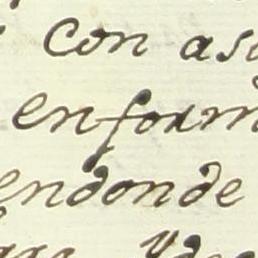 Con as
enform
endonde